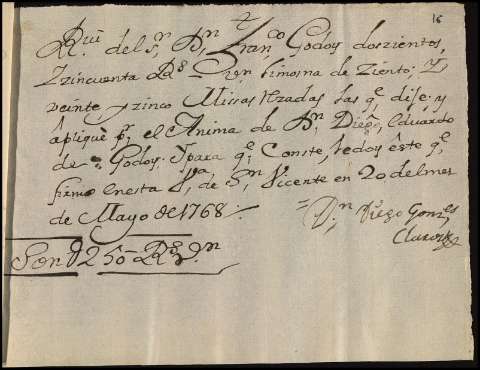 16
Rví del Sr. Dn. Franco Godoy dozientos,
Zzincuenta Rs. Vn. limosna de Ziento; Y
veinte y zinco Missas Rzadas las qe. dije; y
àpliquè pr. el Anima de Dn. Diego, Eduardo
de Godoy. Ypara qe. Conste, le doy èste qe.
firmo enesta Va. de Sn. Vicente en 20 del mes
de Mayo de 1768
= Dn. Diego Gonzs
Claros
Son 250 Rs. Vn.